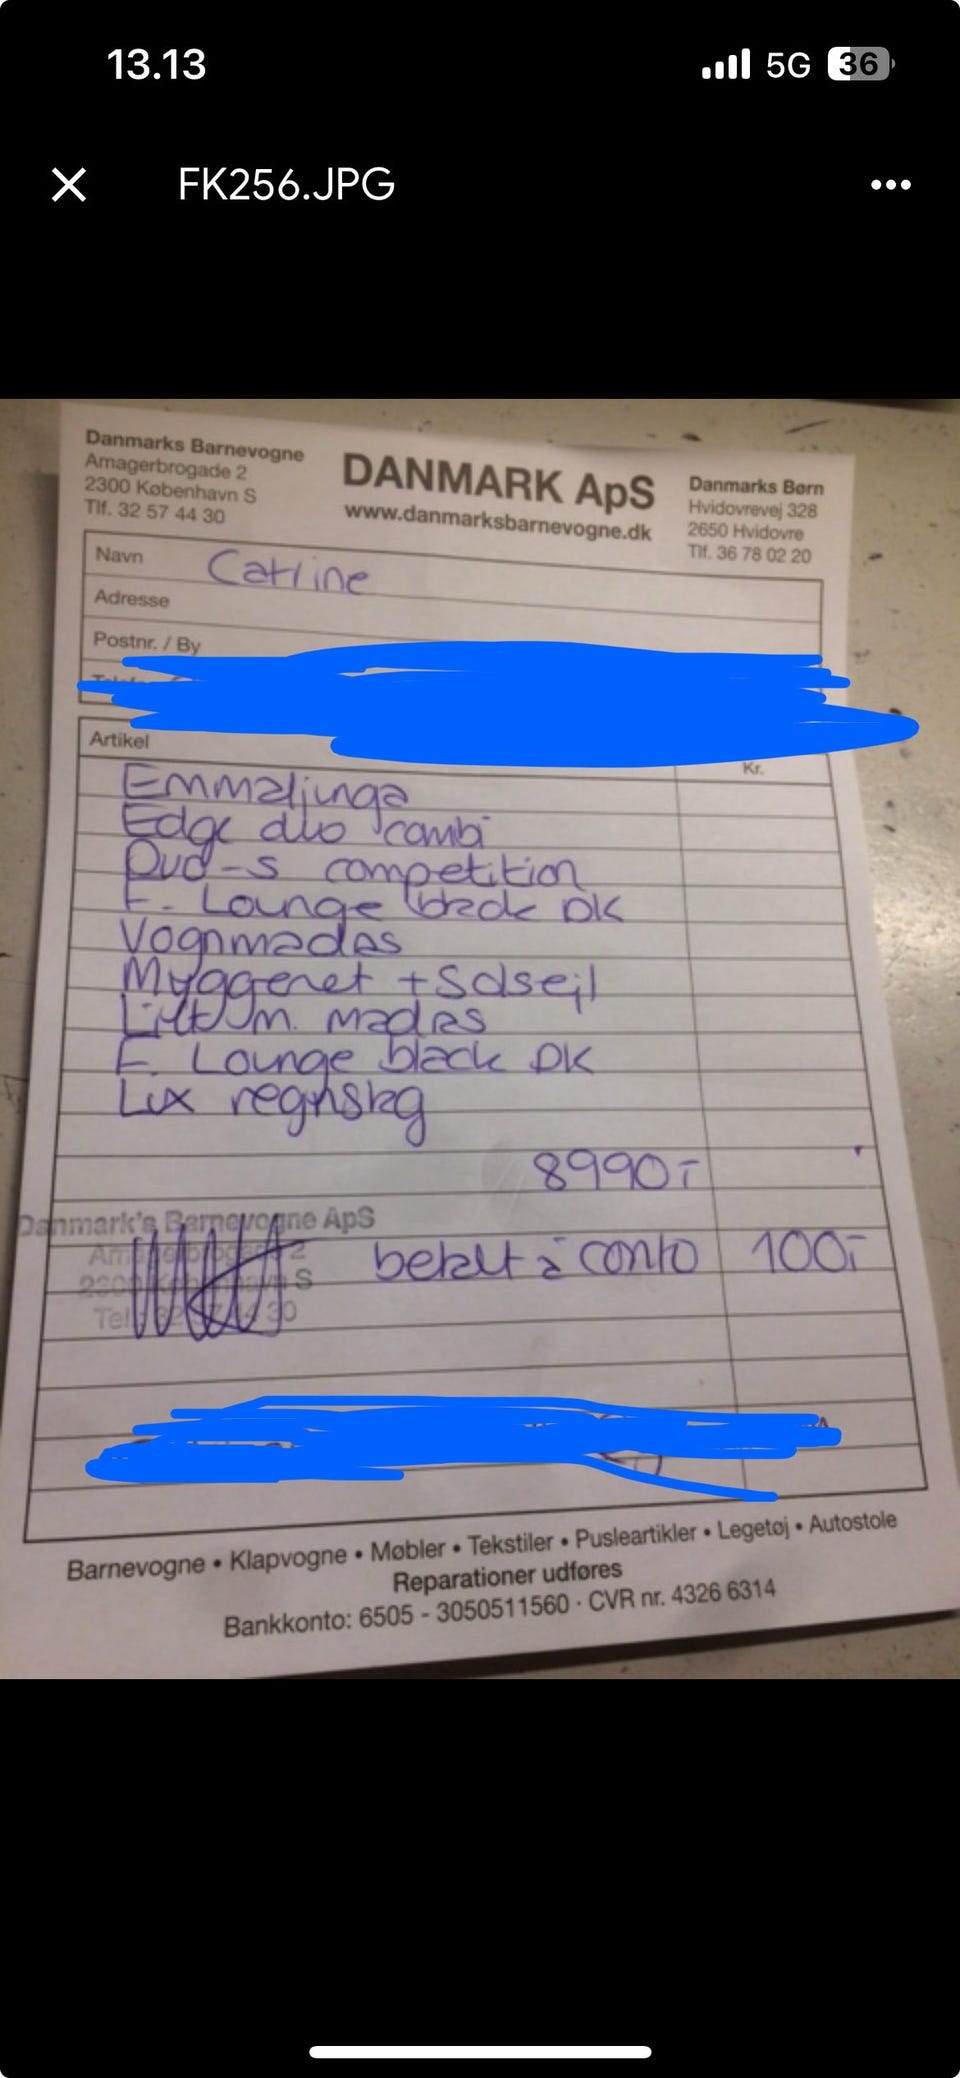 13.13
5G 36
FK256.JPG
Danmarks Barnevogne
Amagerbrogade 2
2300 København S
Tlf. 32 57 44 30
DANMARK ApS
www.danmarksbarnevogne.dk
Danmarks Børn
Hvidovrevej 328
2650 Hvidovre
Tlf. 36 78 02 20
Navn Catrine
Adresse
Postnr. / By
Artikel
Kr.
Emmaljunga
Edge duo combi
Duo-s competition
F. Lounge black DK
Vognmadas
Myggenet + Solsejl
Lift m. madras
F. Lounge black DK
Lux regnslag
8990,-
Danmark's Barnevogne ApS
Amagerbrogade 2
2300 København S
Tel. 32 57 44 30
betalt à conto 100,-
Barnevogne • Klapvogne • Møbler • Tekstiler • Pusleartikler • Legetøj • Autostole
Reparationer udføres
Bankkonto: 6505 - 3050511560 · CVR nr. 4326 6314